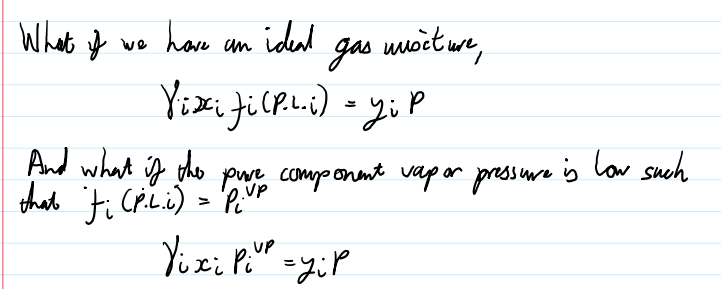 What if we have an ideal gas mixture,
γᵢxᵢfᵢ(P.L.i) = yᵢP
And what if the pure component vapor pressure is low such
that fᵢ(P.L.i) = Pᵢⱽᴾ
γᵢxᵢPᵢⱽᴾ = yᵢP